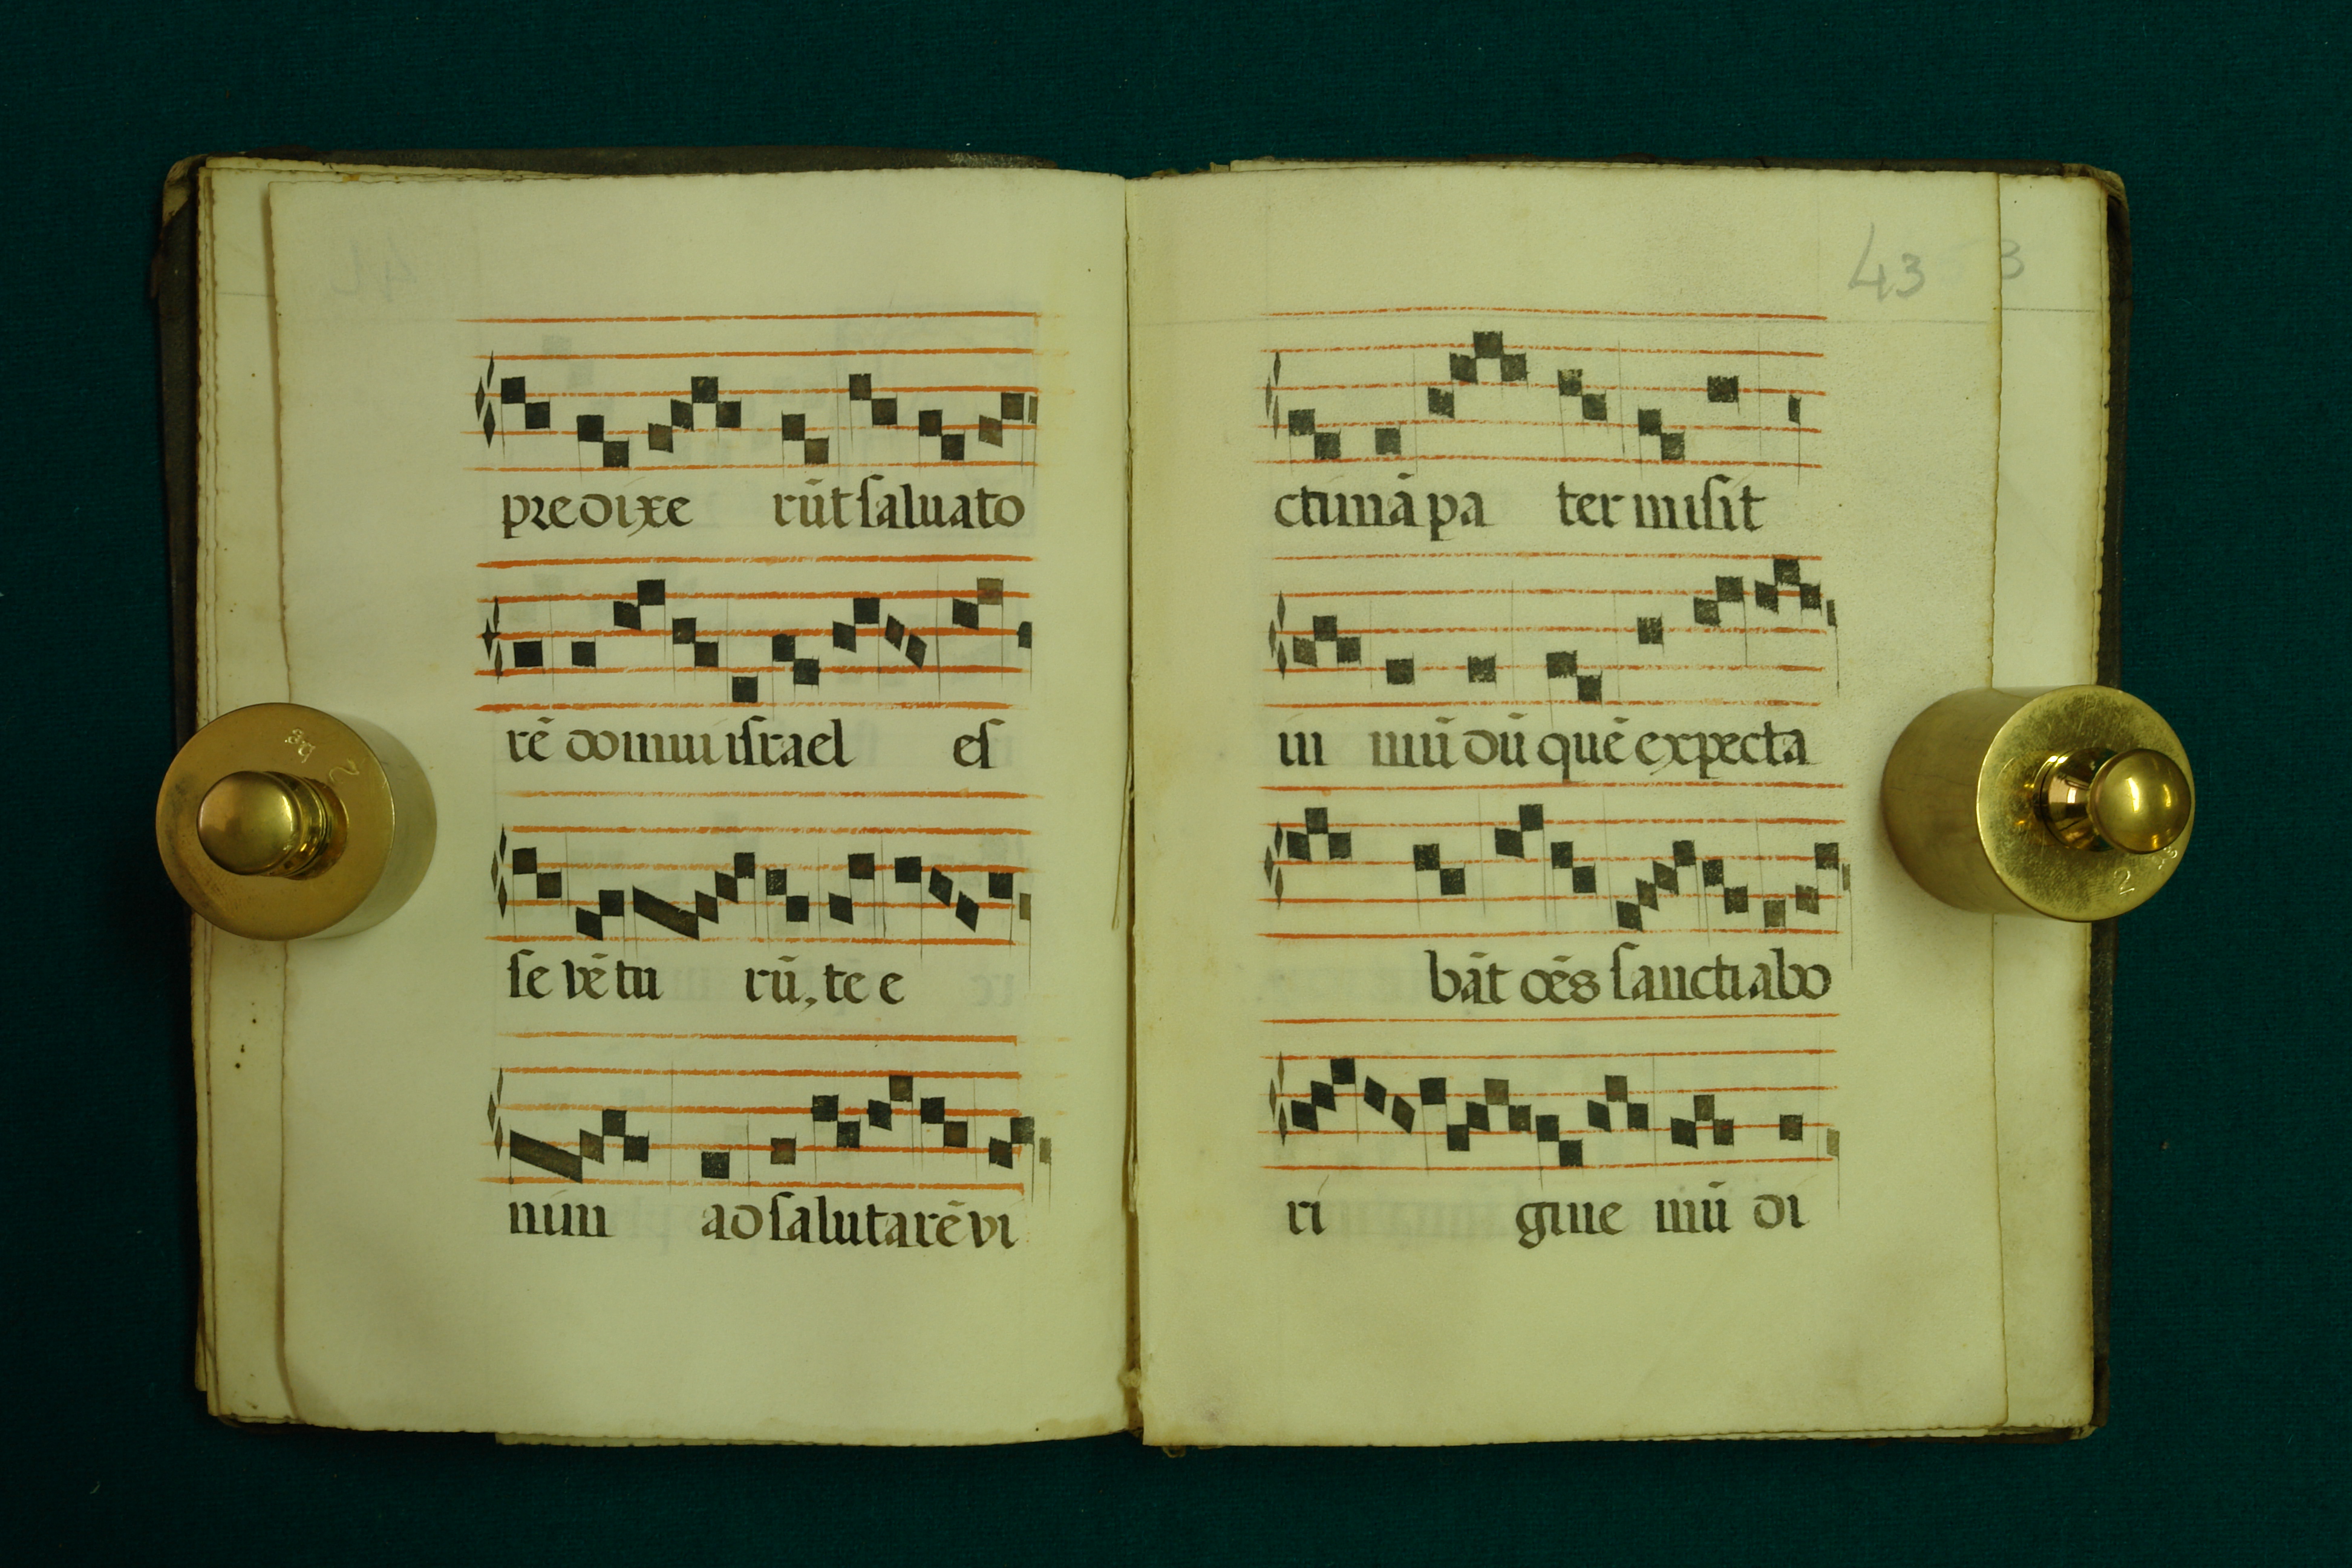 predixe rūt saluato
rē domini israel es
se vētu rū, te e
nim ad salutarē vi
43
3
ctimā pa ter misit
in mū dū quē expecta
bāt oēs sancti abo
ri gine mū di
2
2